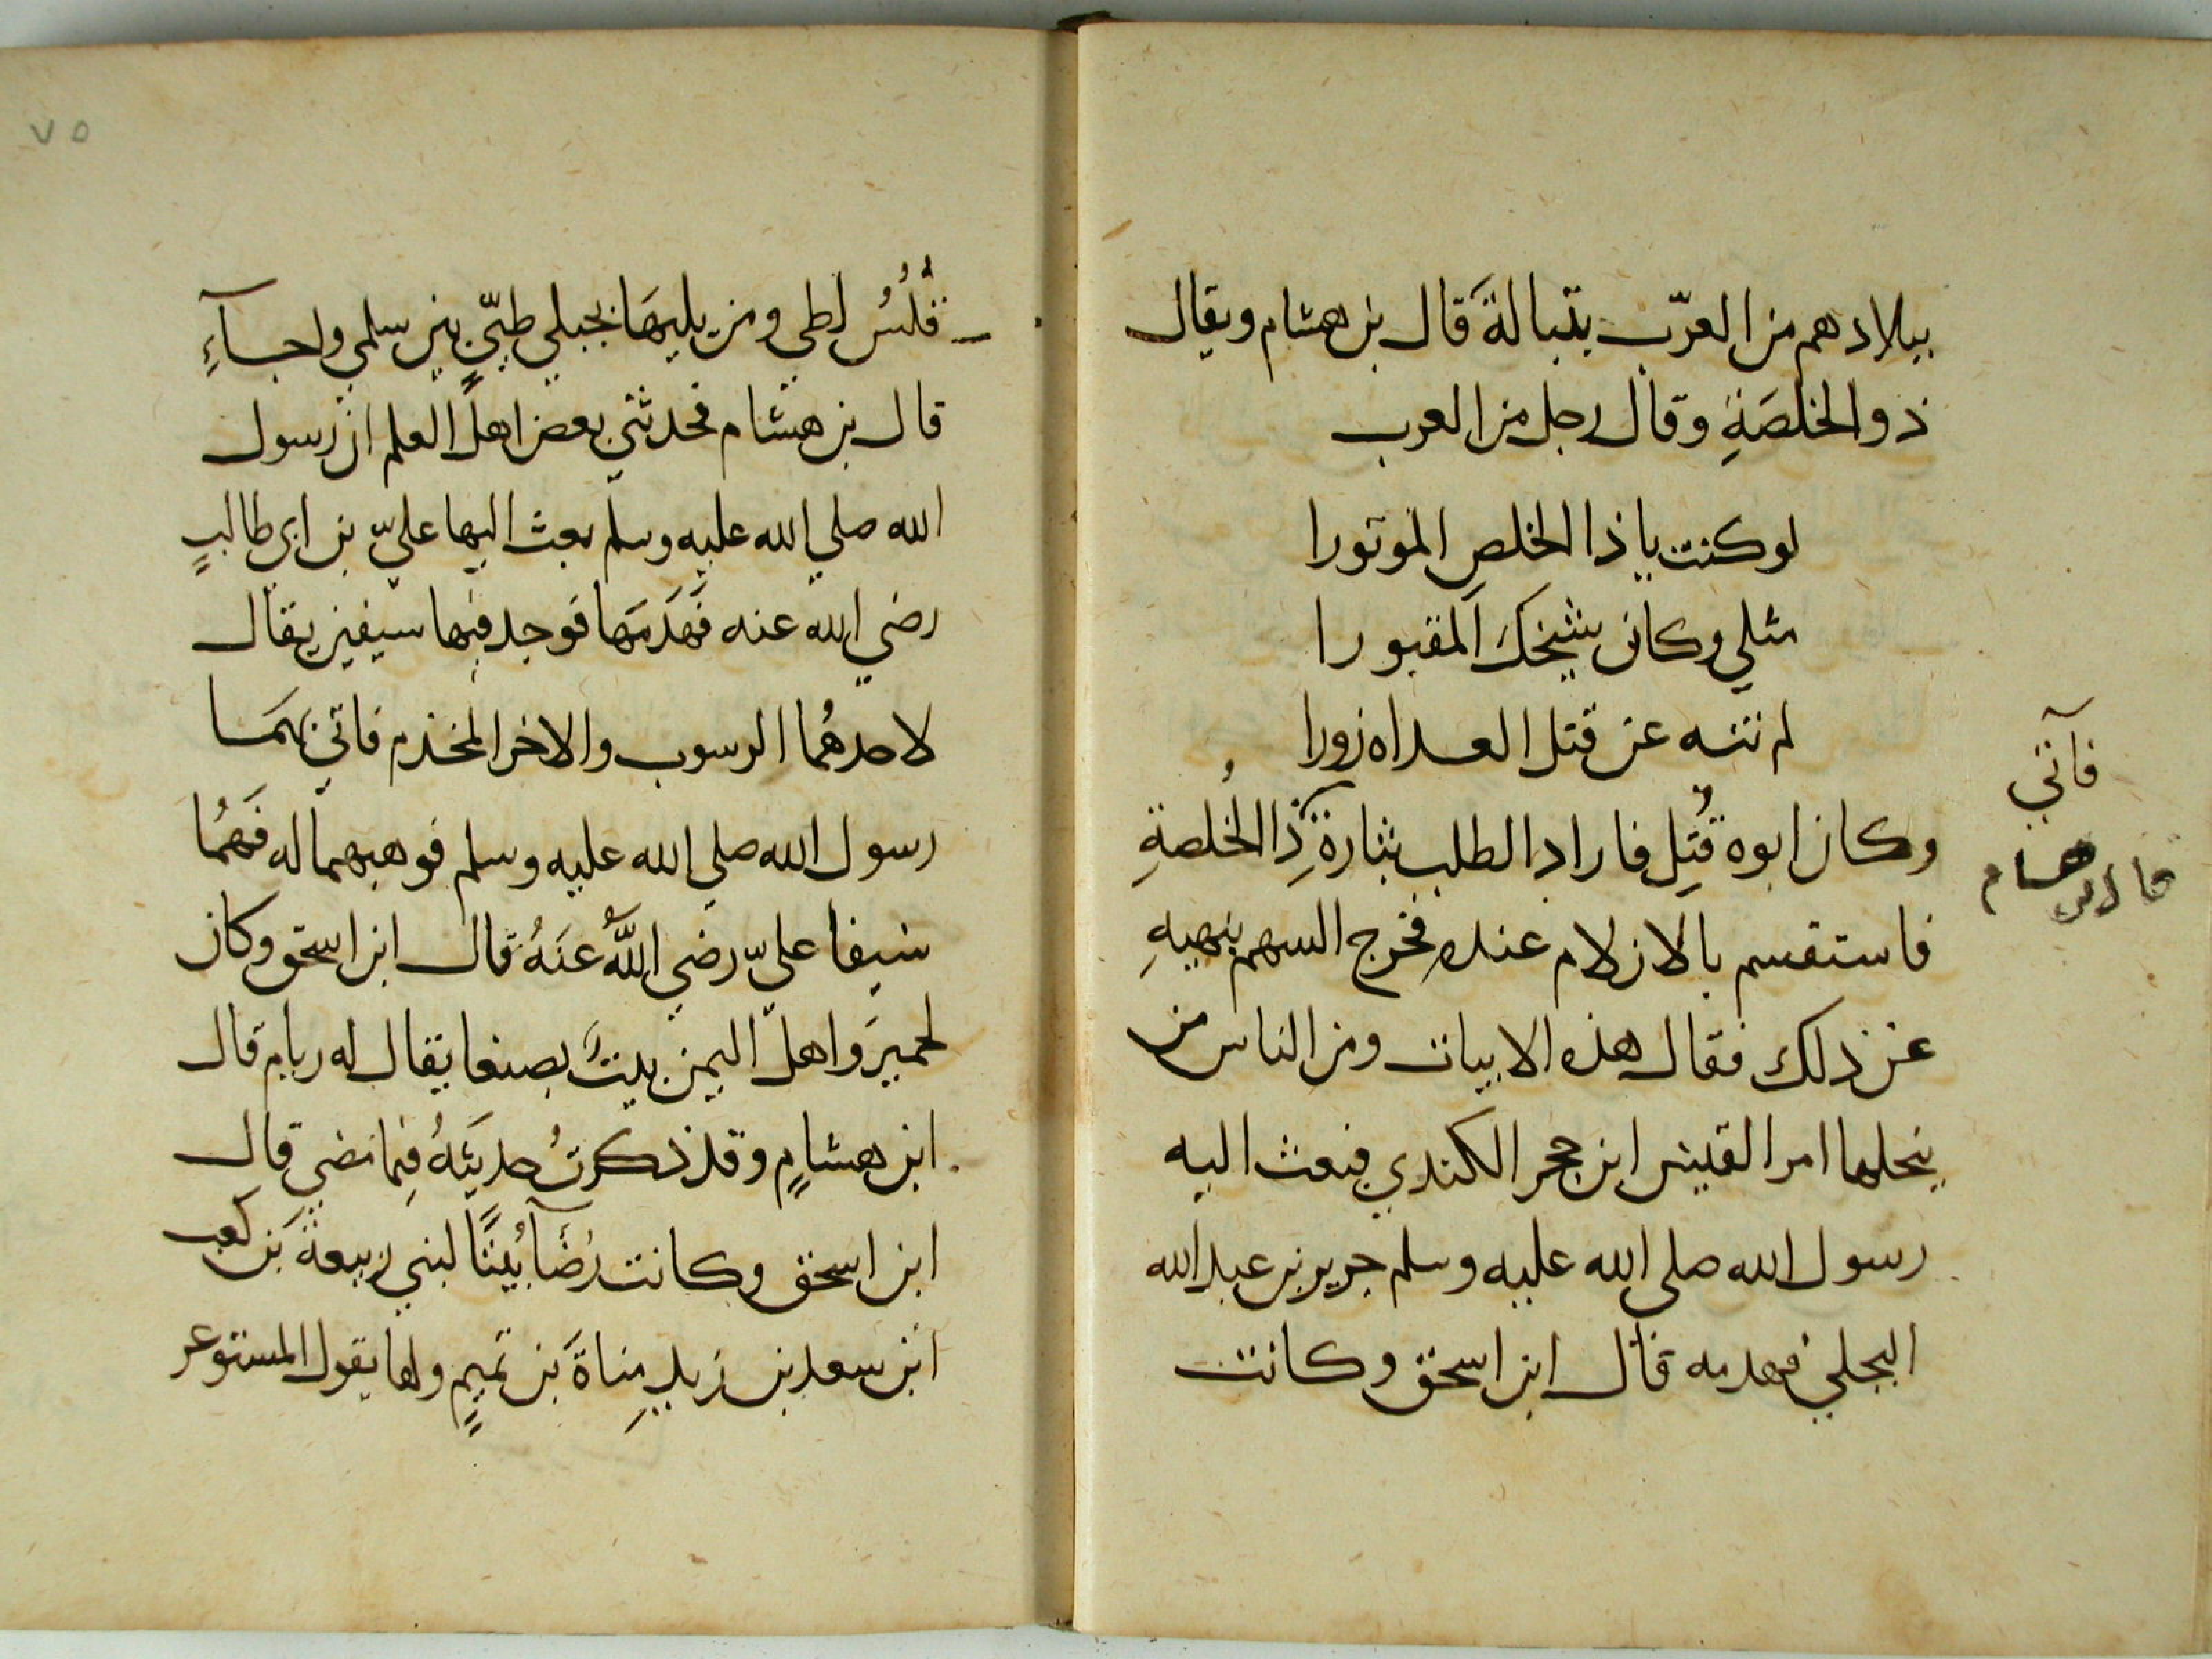 ببلادهم من العرب بتبالة قال بن هشام ويقال
ذو الخلصة وقال رجل من العرب
لو كنت يا ذا الخلص الموتورا
مثلي وكان شيخك المقبورا
لم تنه عن قتل العداه زورا
وكان ابوه قُتِل فاراد الطلب بثارة ذا الخُلصةِ
فاستقسم بالازلام عنده فخرج السهم بنهيهِ
عن ذلك فقال هذه الابيات ومن الناس من
ينحلها امرا القيس ابن حجر الكندي فبعث اليه
رسول الله صلى الله عليه وسلم جرير بن عبد الله
البجلي فهدمه قال ابن اسحق وكانت
فآتي
قال بن هسام
٧٥
فُلُسُ لطي ومن يليهَا بجبلي طيّي بين سلمي واجآءِ
قال بن هشام فحدثني بعض اهل العلم ان رسول
الله صلي الله عليه وسلم بعث اليها عليّ بن ابي طالبٍ
رضي الله عنه فَهَدَمَها فوجد فيها سيفين يقال
لاحدهُما الرسوب والاخر المخذم فاتي بهمَا
رسول الله صلي الله عليه وسلم فوهبهما له فَهُمَا
سيفا عليّ رضي اللَّهُ عنَهُ قال ابن اسحق وكان
لحميرَ واهل اليمن بيتٌ بصنعا يقال له ريام قال
ابن هشامٍ وقد ذكرتُ حديثَهُ فِيما مَضي قال
ابن اسحق وكانت رُضَآ بَيتًا لبني ربيعة بَن كعب
ابن سعد بن زيدِ مِناةَ بن تميمٍ ولها يقول المستوعر